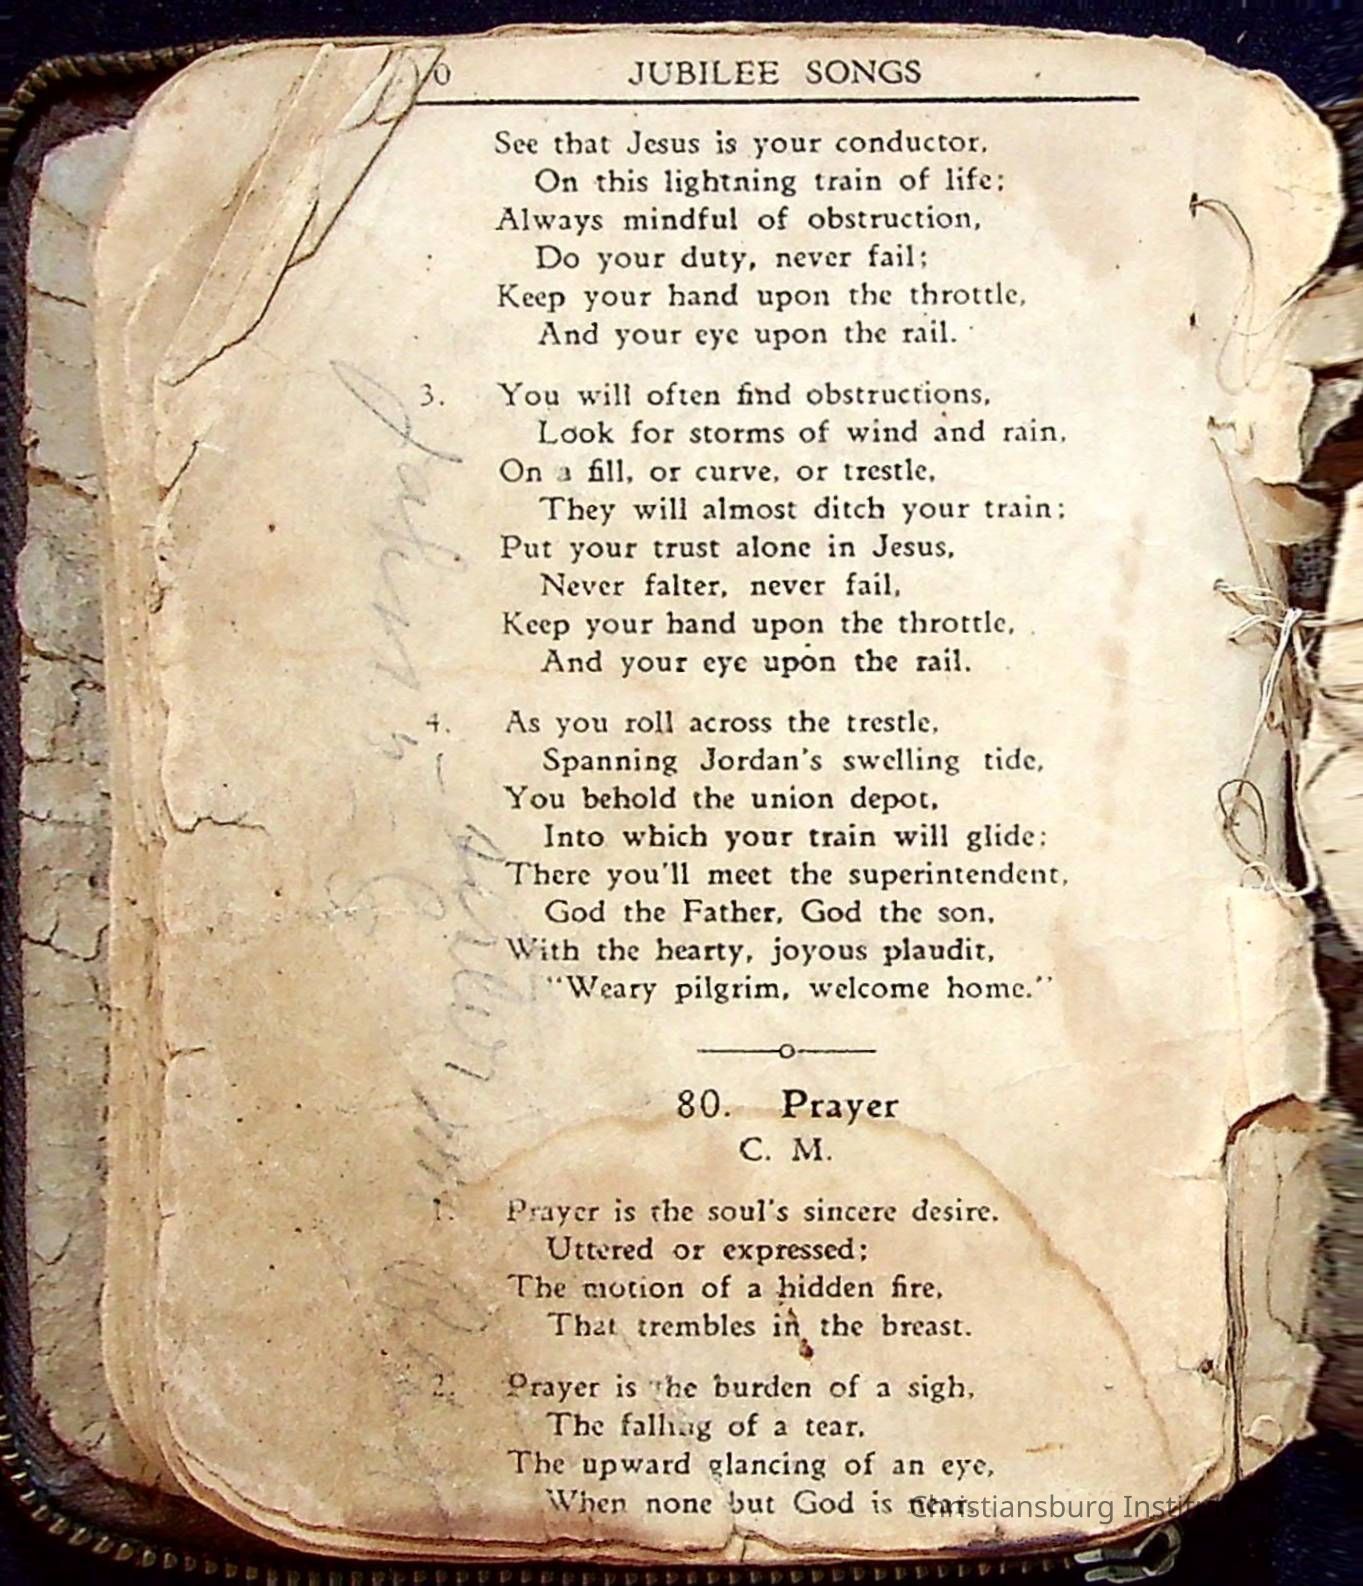 JUBILEE SONGS
See that Jesus is your conductor,
On this lightning train of life;
Always mindful of obstruction,
Do your duty, never fail;
Keep your hand upon the throttle,
And your eye upon the rail.
3. You will often find obstructions,
Look for storms of wind and rain,
On a fill, or curve, or trestle,
They will almost ditch your train;
Put your trust alone in Jesus,
Never falter, never fail,
Keep your hand upon the throttle,
And your eye upon the rail.
4. As you roll across the trestle,
Spanning Jordan's swelling tide,
You behold the union depot,
Into which your train will glide;
There you'll meet the superintendent,
God the Father, God the son,
With the hearty, joyous plaudit,
"Weary pilgrim, welcome home."
80. Prayer
C. M.
1. Prayer is the soul's sincere desire,
Uttered or expressed;
The motion of a hidden fire,
That trembles in the breast.
2. Prayer is the burden of a sigh,
The falling of a tear,
The upward glancing of an eye,
When none but God is near.
Christiansburg